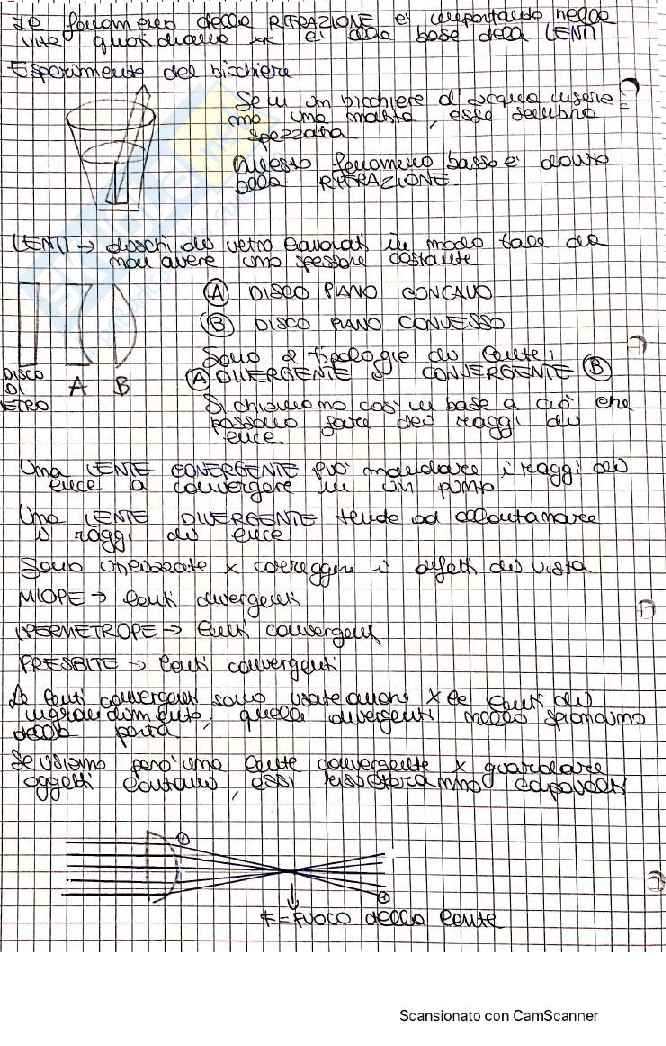 Il fenomeno della RIFRAZIONE è importante nella
vita quotidiana xk è alla base delle LENTI
Esperimento del bicchiere
Se in un bicchiere d'acqua inseria=
mo una matita, essa sembra
spezzata
Questo fenomeno è dovuto
alla RIFRAZIONE.
LENTI → dischi di vetro lavorati in modo tale da
non avere uno spessore costante
Ⓐ DISCO PIANO CONCAVO
Ⓑ DISCO PIANO CONVESSO
Sono 2 tipologie di lente:
Ⓐ DIVERGENTE e CONVERGENTE Ⓑ
Si chiamano così in base a ciò che
possono fare dei raggi di
luce.
DISCO
DI
VETRO
A
B
Una LENTE CONVERGENTE può mandare i raggi di
luce a convergere in un punto
Una LENTE DIVERGENTE tende ad allontanare
i raggi di luce
Sono x correggere i difetti di vista
MIOPE → lenti divergenti
IPERMETROPE → lenti convergenti
PRESBITE → lenti convergenti
Le lenti convergenti sono usate anche x le lenti di
ingrandimento, quelle divergenti nello spioncino
della porta
Se usiamo però una lente convergente x guardare
oggetti lontani, essi capovolti
F = FUOCO della lente
Scansionato con CamScanner